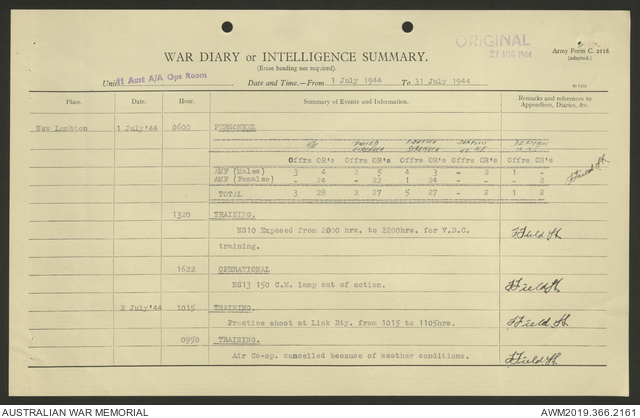 ORIGINAL
21 AUG 1944
Army Form C. 2118
(adapted.)
WAR DIARY or INTELLIGENCE SUMMARY.
(Erase heading not required).
Unit 41 Aust A/A Ops Room Date and Time.—From 1 July 1944 To 31 July 1944
Place. Date. Hour. Summary of Events and Information. Remarks and references to
Appendices, Diaries, &c.
New Lambton 1 July'44 0600 PERSONNEL
W/E POSTED STRENGTH
Offrs OR's Offrs OR's Offrs OR's Offrs OR's Offrs OR's
AMF (Males) 3 4 2 5 4 3 - 2 1 -
AMF (Females) - 24 - 22 1 24 - - - 2
TOTAL 3 28 2 27 5 27 - 2 1 2
1320 TRAINING.
NS10 Exposed from 2000 hrs. to 2200hrs. for V.D.C.
training.
1622 OPERATIONAL
NS13 150 C.M. lamp out of action.
2 July'44 1015 TRAINING.
Practice shoot at Link Bty. from 1015 to 1105hrs.
0950 TRAINING.
Air Co-op. cancelled because of weather conditions.
AUSTRALIAN WAR MEMORIAL AWM2019.366.2161